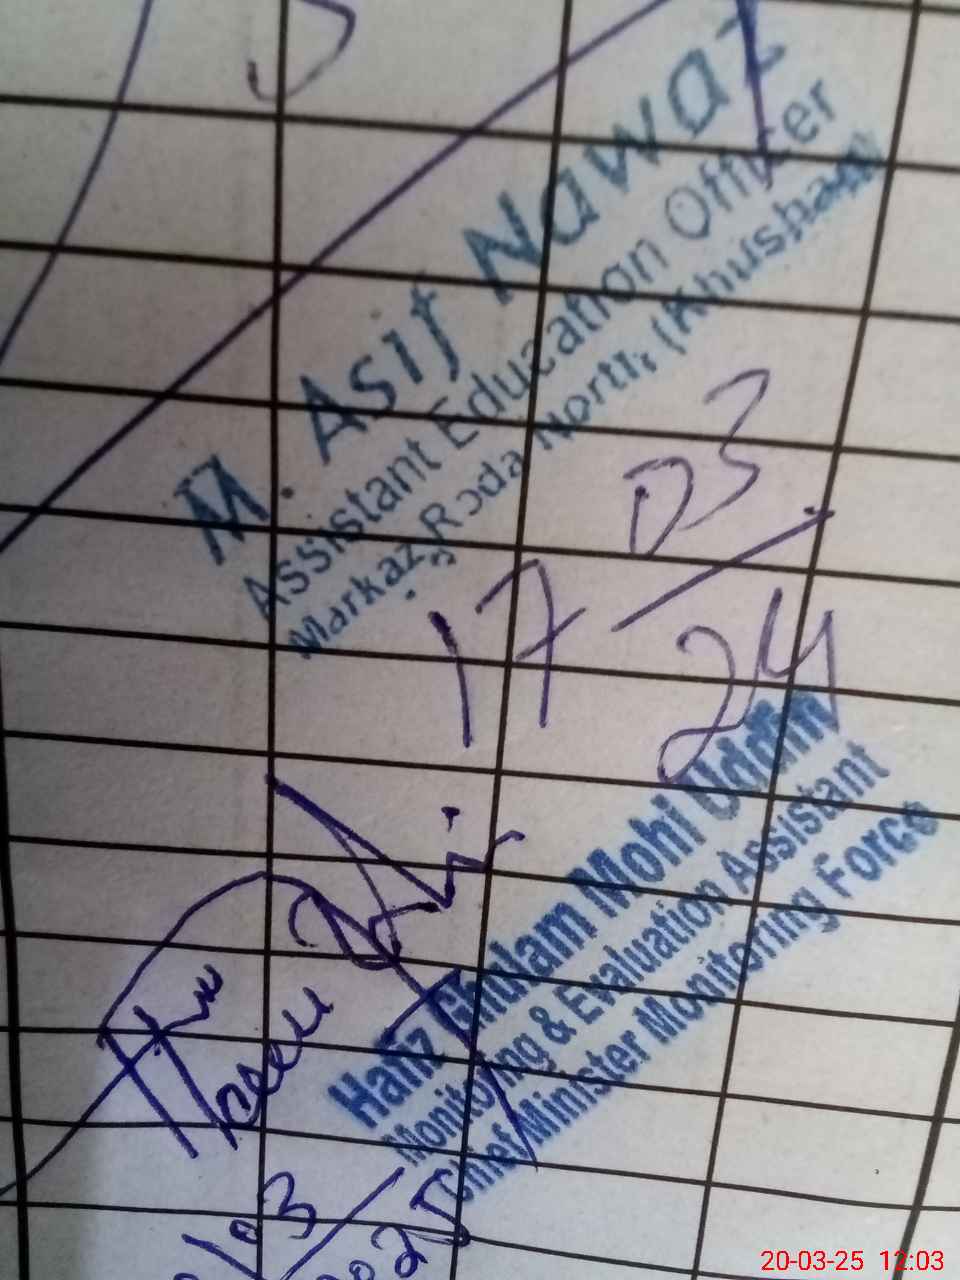 M. Asif Nawaz
Assistant Education Officer
Markaz Roda North, (Khushab)
17 03
24
Hafiz Ghulam Mohi Uddin
Monitoring & Evaluation Assistant
Chief Minister Monitoring Force
03
2025
20-03-25 12:03